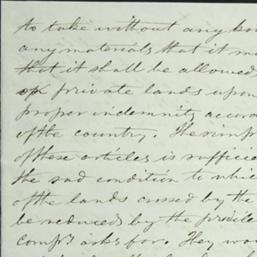 to take without any
any materials that it
that it shall be allowed
of private lands upon
proper indemnity
of the country. The simple
of these articles is
the sad condition to which
of the lands crossed by the
be reduced by the
comp'y asks for. They